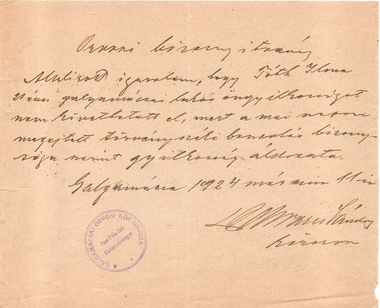 Orvosi bizonyitvány
Alulirott igazolom, hogy Tóth Ilona
21 éves galgamácsai lakós öngyilkosságot
nem követhetett el, mert a mai napon
megejtett törvényszéki boncolás bizony-
sága szerint gyilkosság áldozata.
Galgamácsa 1924 március 11 én
Sándor
körorvos
A GALGAMÁCSAI ORVOSI KÖR ORVOSA